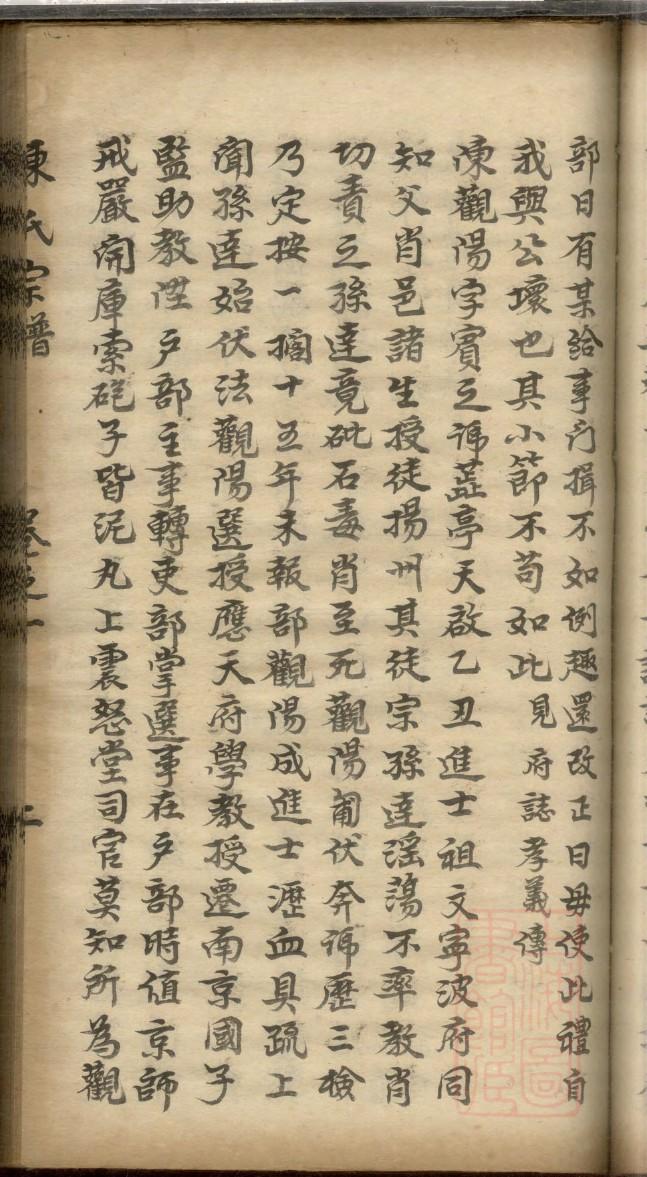 部曰有某給事門揖不如例趣還改正曰毋使此禮自
我與公壞也其小節不苟如此見府誌孝義傳
陳觀陽字賓之號葢亭天啟乙丑進士祖文寧波府同
知父肖邑諸生授徒揚州其徒宗孫逵滛蕩不率教肖
切責之孫逵竟砒石毒肖至死觀陽匍伏奔號歷三檢
乃定按一擱十五年未報部觀陽成進士瀝血具疏上
聞孫逵始伏法觀陽選授應天府學教授遷南京國子
監助教陞戶部主事轉吏部掌選事在戶部時值京師
戒嚴開庫索砲子皆泥丸上震怒堂司官莫知所為觀
陳氏宗譜 卷之一 二